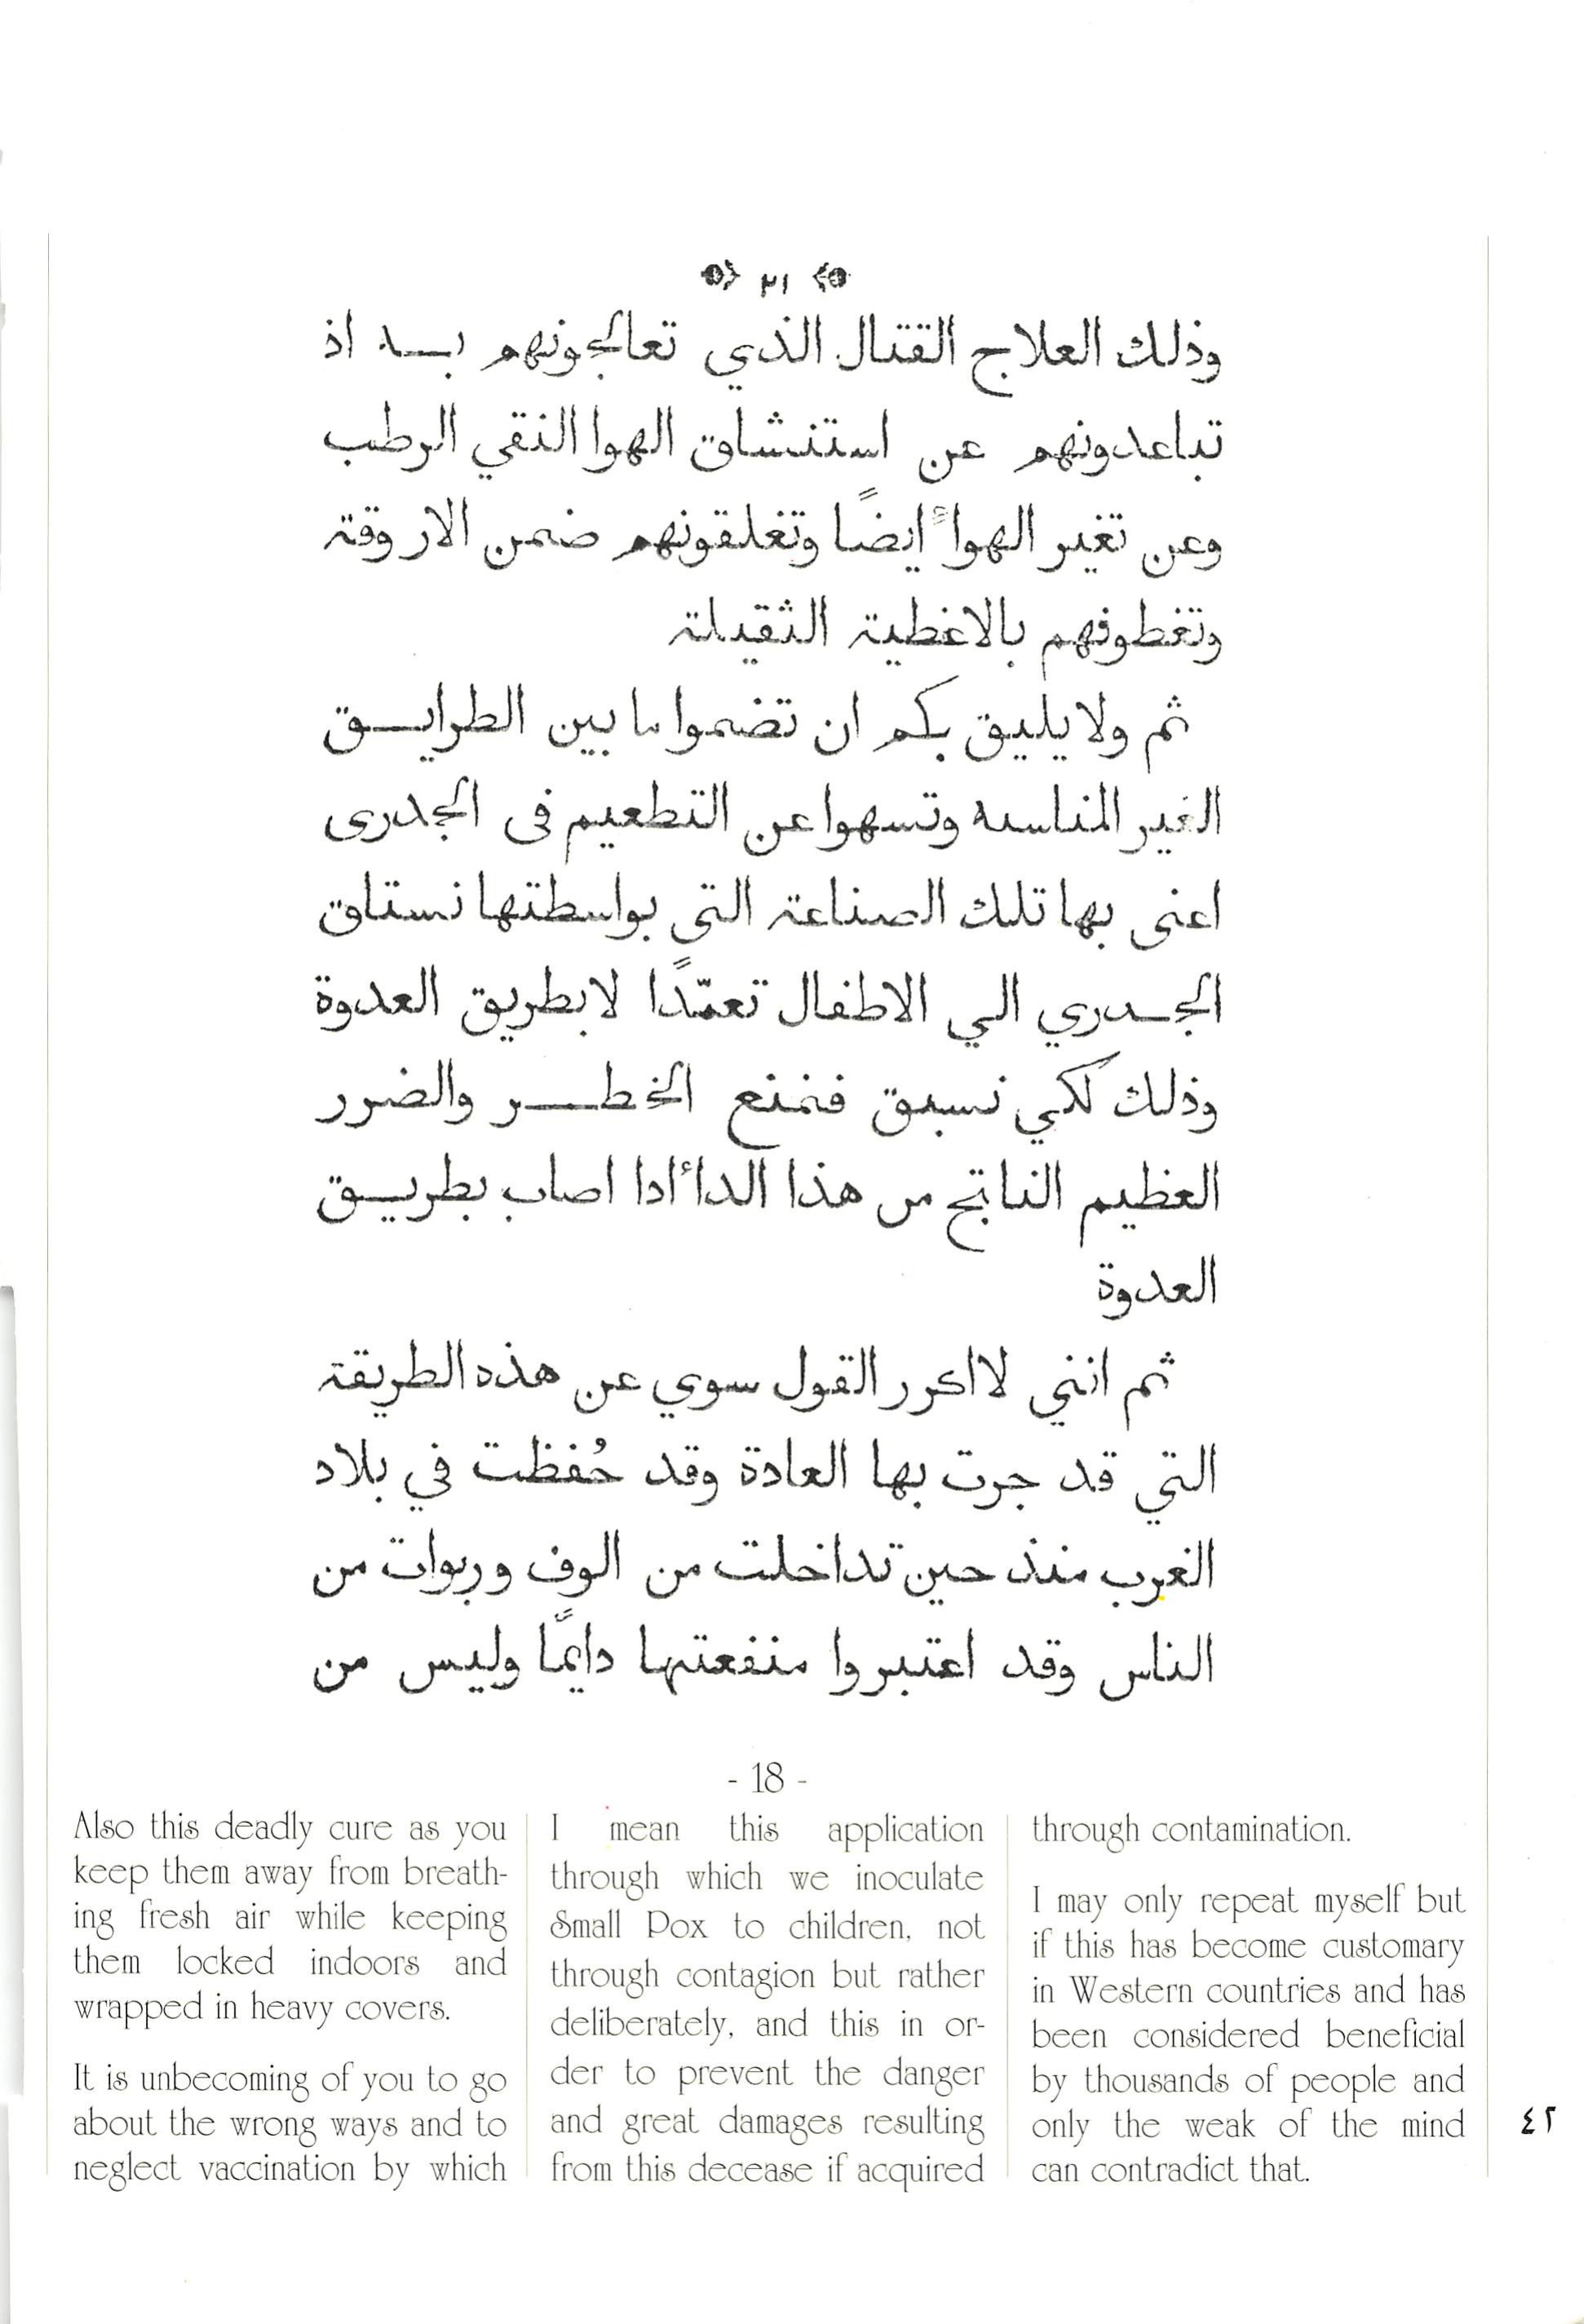 ٢١
وذلك العلاج القتال الذي تعالجونهم بـــه اذ
تباعدونهم عن استنشاق الهوا النقي الرطب
وعن تغير الهواءً ايضًا وتغلقونهم ضمن الاروقة
وتغطوفهم بالاغطية الثقيلة
ثم ولا يليق بكم ان تضموا ما بين الطرايـــق
الغير المناسبه وتسهوا عن التطعيم فى الجدرى
اعنى بها تلك الصناعة التى بواسطتها نستاق
الجـــدري الي الاطفال تعمّدًا لا بطريق العدوة
وذلك لكي نسبق فنمنع الخطــــر والضرر
العظيم الناتج من هذا الداأ اذا اصاب بطريـــق
العدوة
ثم انني لا اكرر القول سوي عن هذه الطريقة
التي قد جرت بها العادة وقد حُفظت في بلاد
الغرب منذ حين تداخلت من الوف وربوات من
الناس وقد اعتبروا منفعتها دايمًا وليس من
- 18 -
Also this deadly cure as you
keep them away from breath-
ing fresh air while keeping
them locked indoors and
wrapped in heavy covers.
It is unbecoming of you to go
about the wrong ways and to
neglect vaccination by which
I mean this application
through which we inoculate
Small Pox to children, not
through contagion but rather
deliberately, and this in or-
der to prevent the danger
and great damages resulting
from this decease if acquired
through contamination.
I may only repeat myself but
if this has become customary
in Western countries and has
been considered beneficial
by thousands of people and
only the weak of the mind
can contradict that.
٤٢